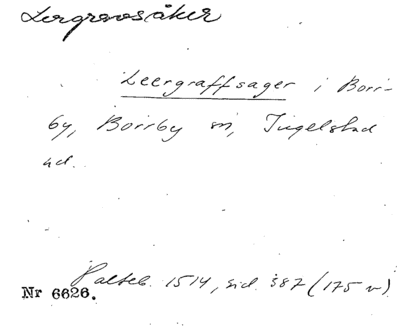 Lergravsåker
Leergraffsager i Borr-
by, Borrby sn, Ingelstad
hd.
Palteb. 1514, sid. 387 (175 v)
Nr 6626.